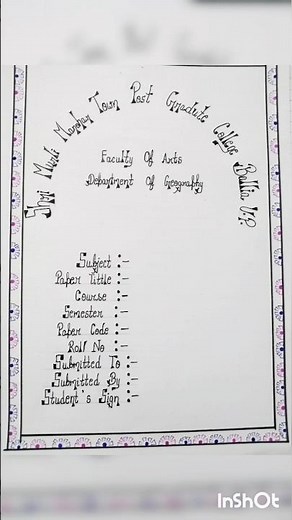 Shri Murli Manohar Town Post Graduate College Ballia U.P
Faculty Of Arts
Department Of Geography
Subject :-
Paper Tittle :-
Course :-
Semester :-
Paper Code :-
Roll No :-
Submitted To :-
Submitted By :-
Student's Sign :-
InShOt